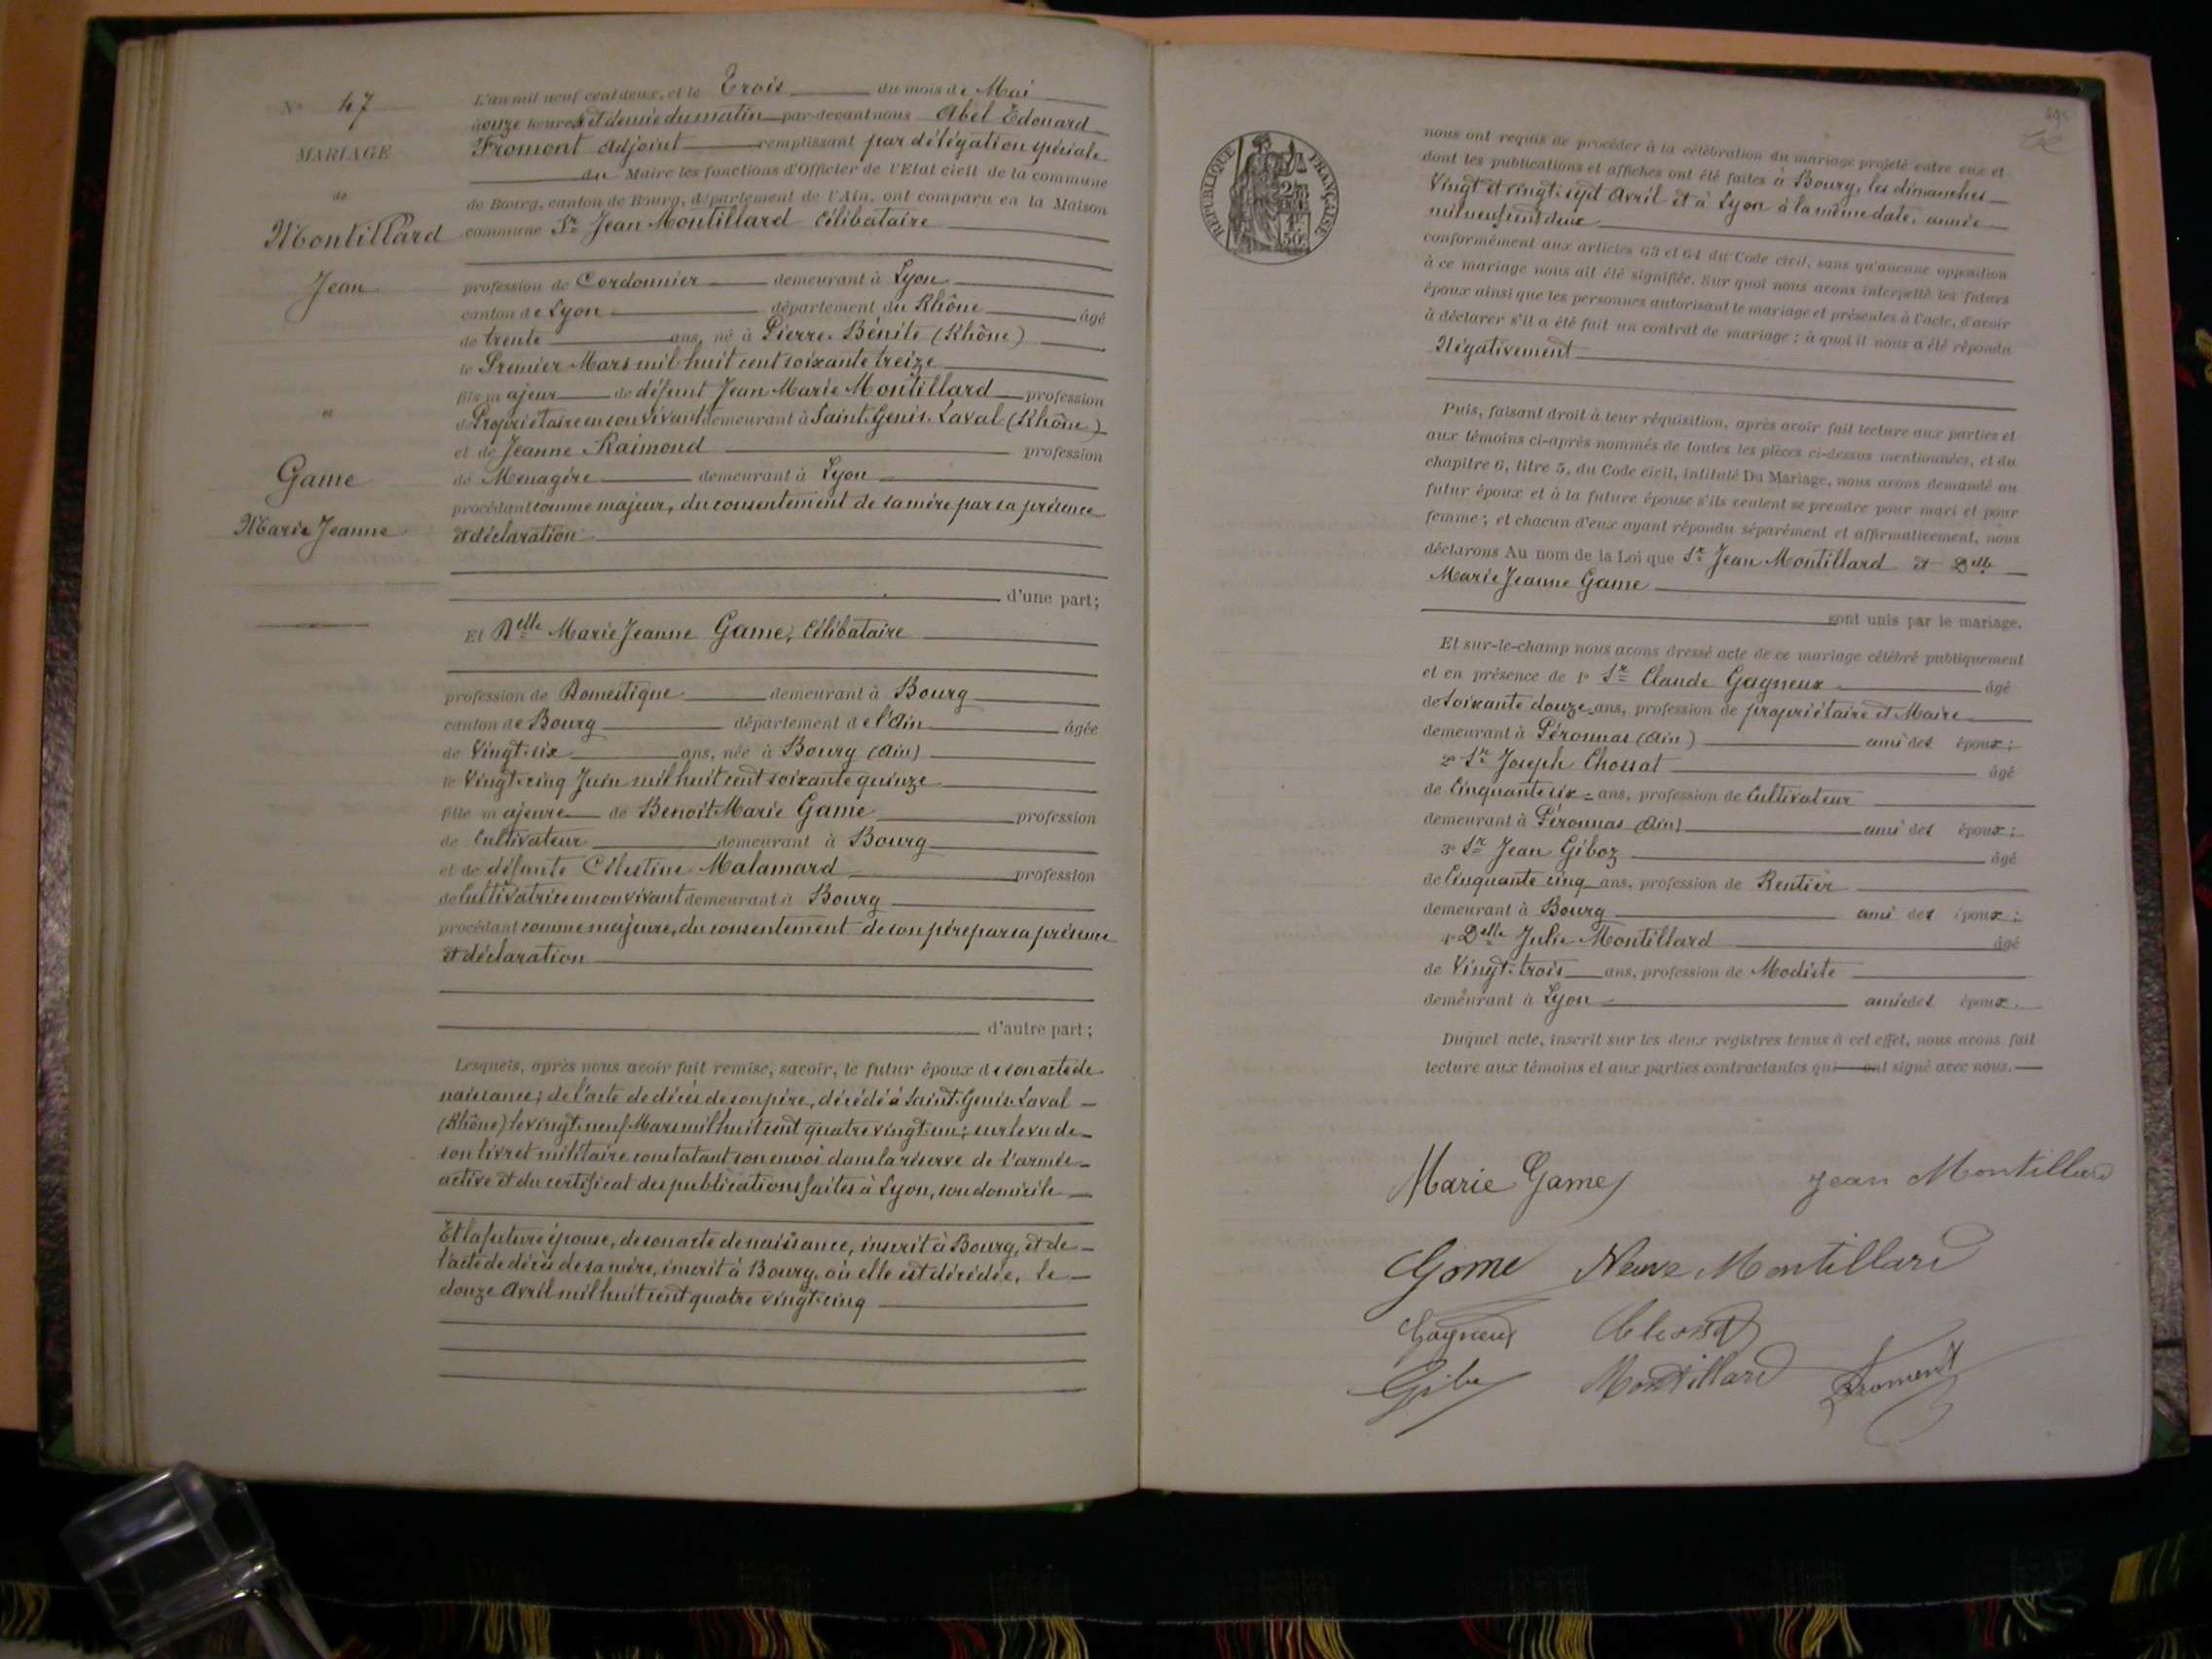 No 47
MARIAGE
de
Montillard
Jean
et
Game
Marie Jeanne
L'an mil neuf cent deux, et le Trois du mois de Mai
à onze heures et demie du matin par-devant nous Abel Edouard
Fromont Adjoint remplissant par délégation spéciale
du Maire les fonctions d'Officier de l'Etat civil de la commune
de Bourg, canton de Bourg, département de l'Ain, ont comparu en la Maison
commune Sr Jean Montillard Célibataire
profession de Cordonnier demeurant à Lyon
canton de Lyon département du Rhône âgé
de trente ans, né à Pierre-Bénite (Rhône)
le Premier Mars mil huit cent soixante treize
fils majeur de défunt Jean Marie Montillard profession
de Propriétaire en son vivant demeurant à Saint-Genis-Laval (Rhône)
et de Jeanne Raimond profession
de Menagère demeurant à Lyon
procédant comme majeur, du consentement de sa mère par sa présence
et déclaration
d'une part;
Et Delle Marie Jeanne Game, Célibataire
profession de Domestique demeurant à Bourg
canton de Bourg département de l'Ain âgée
de Vingt-six ans, née à Bourg (Ain)
le Vingt-cinq Juin mil huit cent soixante quinze
fille majeure de Benoit Marie Game profession
de Cultivateur demeurant à Bourg
et de défunte Célestine Malamard profession
de Cultivatrice en son vivant demeurant à Bourg
procédant comme majeure, du consentement de son père par sa présence
et déclaration
d'autre part;
Lesquels, après nous avoir fait remise, savoir, le futur époux de son acte de
naissance; de l'acte de décès de son père, décédé à Saint-Genis-Laval
(Rhône) le vingt-neuf Mars mil huit cent quatre vingt-un; sur le vu de
son livret militaire constatant son envoi dans la réserve de l'armée
active et du certificat des publications faites à Lyon, son domicile
Et la future épouse, de son acte de naissance, inscrit à Bourg, et de
l'acte de décès de sa mère, inscrit à Bourg, où elle est décédée, le
douze Avril mil huit cent quatre vingt-cinq
REPUBLIQUE FRANÇAISE
nous ont requis de procéder à la célébration du mariage projeté entre eux et
dont les publications et affiches ont été faites à Bourg, les dimanches
Vingt et vingt-sept Avril et à Lyon à la même date, année
mil neuf cent deux
conformément aux articles 63 et 64 du Code civil, sans qu'aucune opposition
à ce mariage nous ait été signifiée. Sur quoi nous avons interpellé les futurs
époux ainsi que les personnes autorisant le mariage et présentes à l'acte, d'avoir
à déclarer s'il a été fait un contrat de mariage; à quoi il nous a été répondu
Négativement
Puis, faisant droit à leur réquisition, après avoir fait lecture aux parties et
aux témoins ci-après nommés de toutes les pièces ci-dessus mentionnées, et du
chapitre 6, titre 5, du Code civil, intitulé Du Mariage, nous avons demandé au
futur époux et à la future épouse s'ils veulent se prendre pour mari et pour
femme; et chacun d'eux ayant répondu séparément et affirmativement, nous
déclarons Au nom de la Loi que Sr Jean Montillard et Delle
Marie Jeanne Game
sont unis par le mariage.
Et sur-le-champ nous avons dressé acte de ce mariage célébré publiquement
et en présence de 1o Sr Claude Gagneux âgé
de Soixante douze ans, profession de propriétaire et Maire
demeurant à Péronnas (Ain) ami des époux;
2o Sr Joseph Chossat âgé
de Cinquante six ans, profession de Cultivateur
demeurant à Péronnas (Ain) ami des époux;
3o Sr Jean Giboz âgé
de Cinquante cinq ans, profession de Rentier
demeurant à Bourg ami des époux;
4o Delle Julie Montillard âgé
de Vingt-trois ans, profession de Modiste
demeurant à Lyon amie des époux.
Duquel acte, inscrit sur les deux registres tenus à cet effet, nous avons fait
lecture aux témoins et aux parties contractantes qui ont signé avec nous.
Marie Game Jean Montillard
Game Veuve Montillard
Gagneux Chossat
Gibo Montillard Fromont